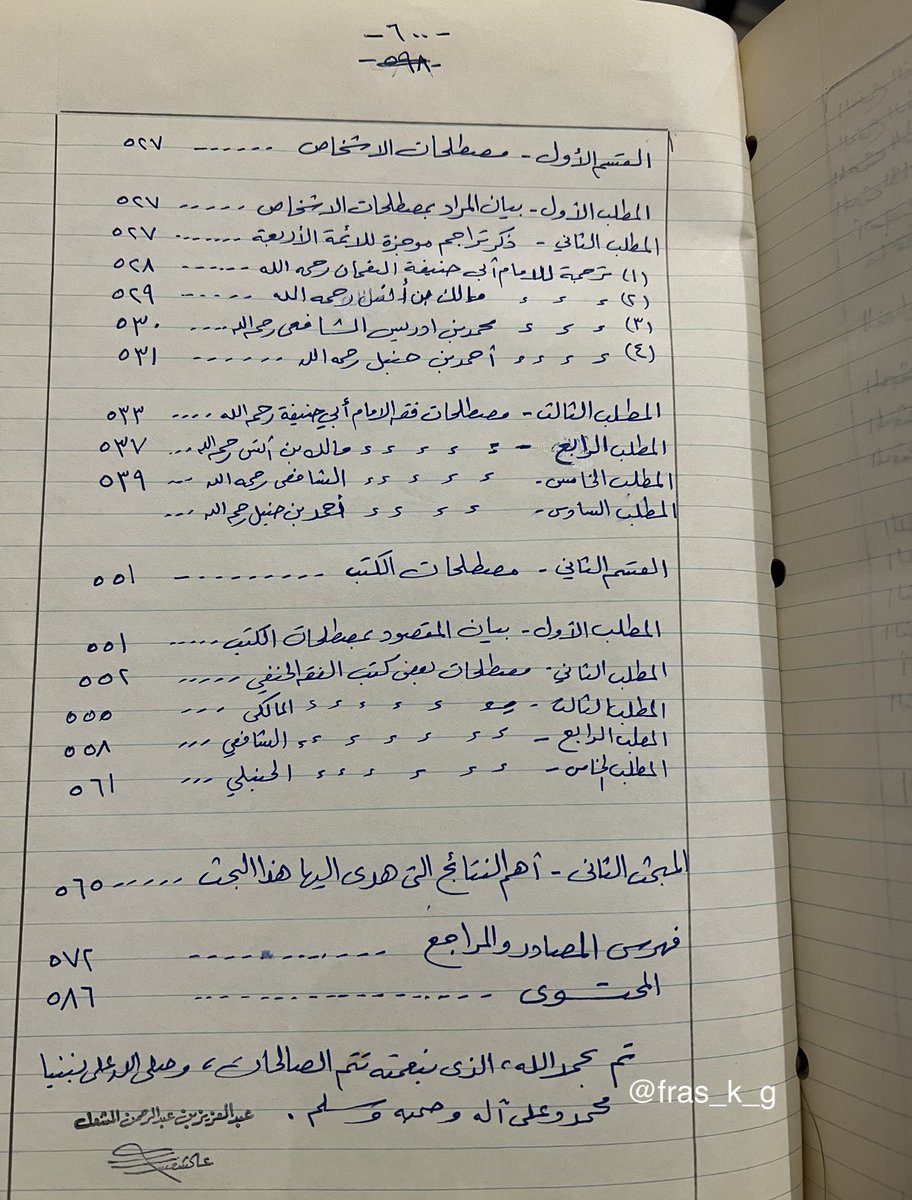 -٦٠٠-
-٥٩٨-
القسم الأول - مصطلحات الاشخاص ------ ٥٢٧
المطلب الأول - بيان المراد بمصطلحات الاشخاص ----- ٥٢٧
المطلب الثاني - ذكر تراجم موجزة للائمة الأربعة ------- ٥٢٧
(١) ترجمة للامام أبي حنيفة النعمان رحمه الله ------ ٥٢٨
(٢) ء ء ء مالك بن أنس رحمه الله ------ ٥٢٩
(٣) ء ء ء محمد بن ادريس الشافعى رحمه الله ---- ٥٣٠
(٤) ء ء ء ء أحمد بن حنبل رحمه الله ------- ٥٣١
المطلب الثالث - مصطلحات فقه الامام أبي حنيفة رحمه الله ---- ٥٣٣
المطلب الرابع - ء ء ء ء ء مالك بن أنس رحمه الله --- ٥٣٧
المطلب الخامس - ء ء ء ء ء الشافعى رحمه الله --- ٥٣٩
المطلب السادس - ء ء ء ء ء أحمد بن حنبل رحمه الله ---
القسم الثاني - مصطلحات الكتب ---------- ٥٥١
المطلب الأول - بيان المقصود بمصطلحات الكتب ----- ٥٥١
المطلب الثاني - مصطلحات بعض كتب الفقه الحنفي ----- ٥٥٢
المطلب الثالث - ء ء ء ء ء ء المالكى --- ٥٥٥
المطلب الرابع - ء ء ء ء ء ء ء الشافعي --- ٥٥٨
المطلب الخامس - ء ء ء ء ء ء الحنبلي --- ٥٦١
المبحث الثانى - أهم النتائج التى هدى اليها هذا البحث ------ ٥٦٥
فهرس المصادر والمراجع ------------ ٥٧٢
المحتوى ------------------ ٥٨٦
تم بحمد الله، الذى بنعمته تتم الصالحات، وصلى الله على نبينا
محمد وعلى آله وصحبه وسلم.
@fras_k_g
عبد العزيز بن عبد الرحمن